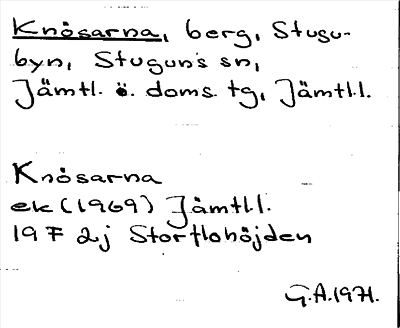 Knösarna, berg, Stugu-
byn, Stuguns sn,
Jämtl. ö. doms. tg, Jämtl.l.
Knösarna
ek (1969) Jämtl.l.
19 F 2j Stortlohöjden
G.A. 1971.